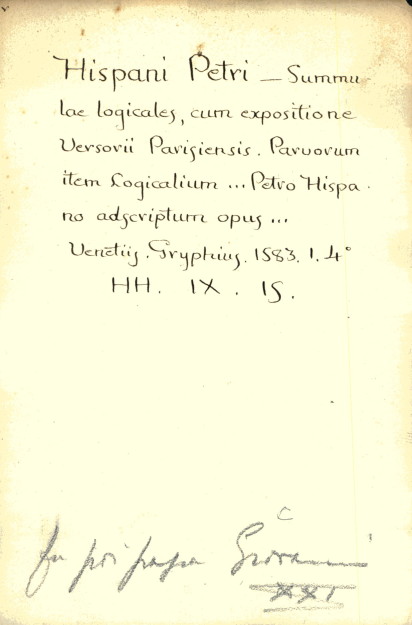 Hispani Petri — Summu
lae logicales, cum expositione
Versorii Parisiensis. Parvorum
item Logicalium ... Petro Hispa-
no adscriptum opus ...
Venetiis. Gryphius. 1583. 1. 4°
HH. IX. 15.
fu poi papa Giovanni
XXI